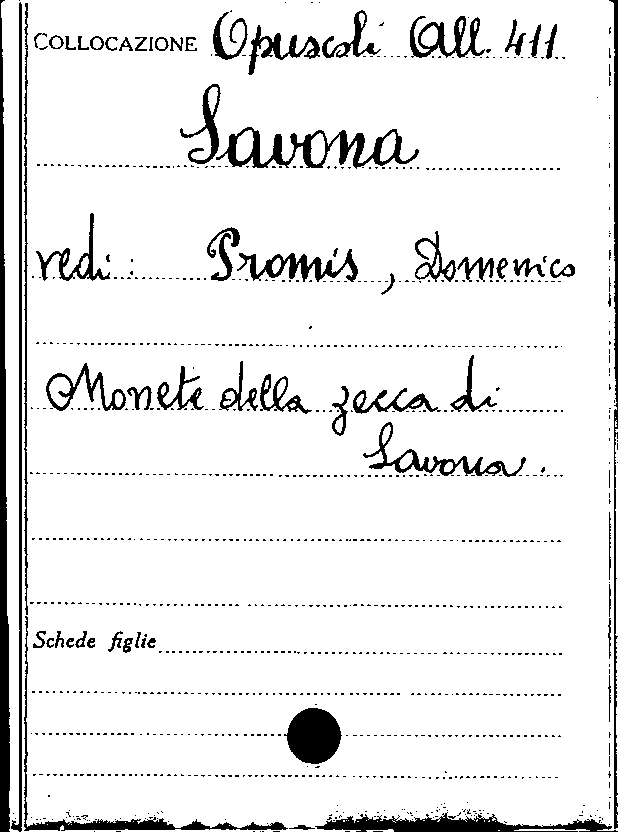 COLLOCAZIONE Opuscoli All. 411
Savona
vedi: Promis, Domenico
Monete della zecca di
Savona.
Schede figlie